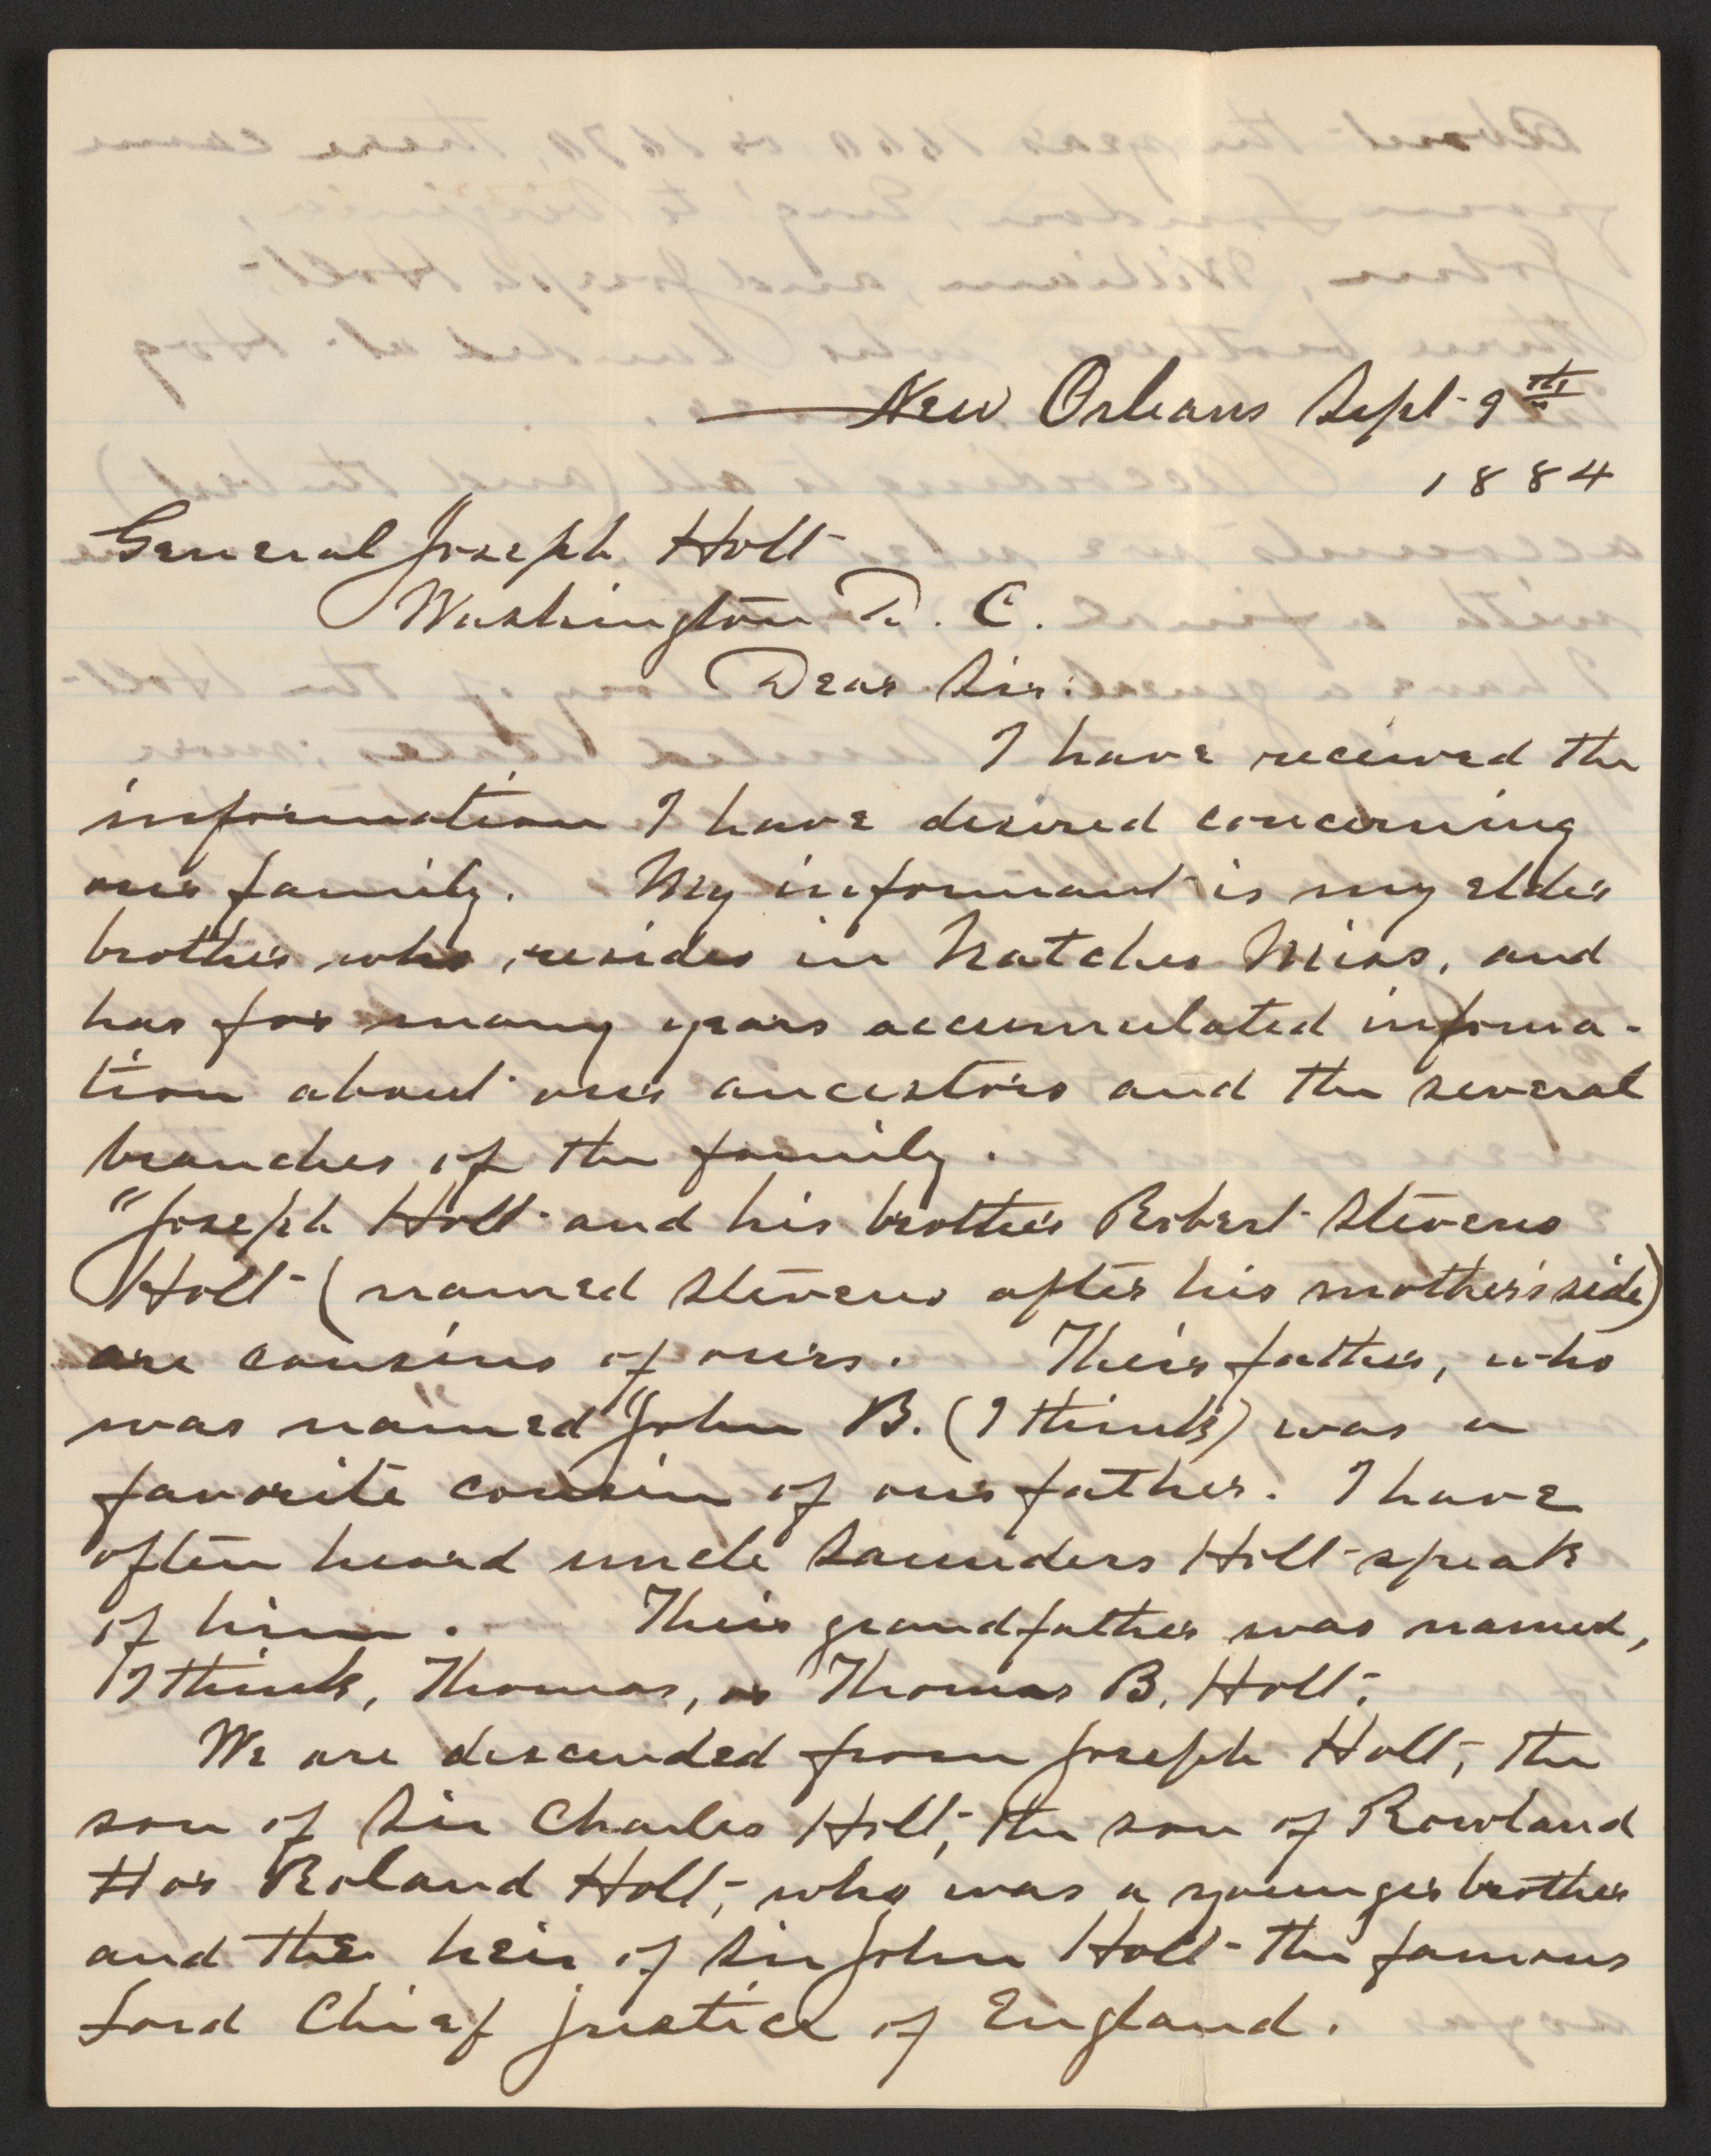 New Orleans Sept 9th
1884
General Joseph Holt
Washington D. C.
Dear Sir:
I have received the
information I have desired concerning
our family. My informant is my elder
brother who resides in Natchez Miss, and
has for many years accumulated informa-
tion about our ancestors and the several
branches of the family.
"Joseph Holt and his brother Robert Stevens
Holt (named Stevens after his mother's side)
are cousins of ours. Their father, who
was named "John B. (I think) was a
favorite cousin of our father. I have
often heard uncle Saunders Holt speak
of him. Their grandfather was named,
I think, Thomas, or Thomas B. Holt.
We are descended from Joseph Holt, the
son of Sir Charles Holt, the son of Rowland
H or Roland Holt, who was a younger brother
and the heir of Sir John Holt the famous
Lord Chief Justice of England.